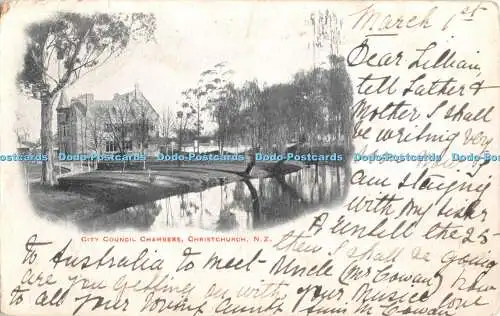 March 1st
Dear Lillian
tell Father &
Mother I shall
be writing very
am staying
with my sister
A
until the 25-
City Council Chambers, Christchurch, N.Z.
then I shall be going
to Australia to meet Uncle (Mr Cowan) how
are you getting on with your Music love
to all your loving Aunt Cowan
Dodo-Postcards.uk Dodo-Postcards.uk Dodo-Postcards.uk Dodo-Postcards.uk Dodo-Postcards.uk